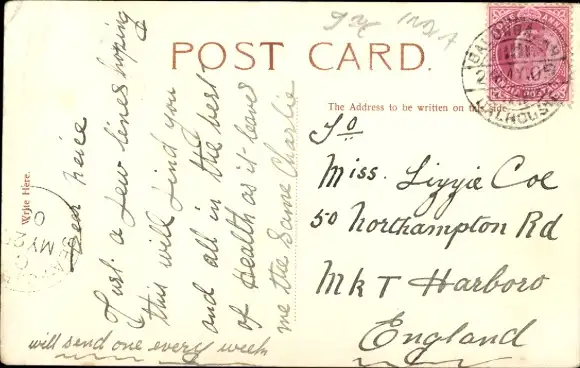 POST CARD.
The Address to be written on this side.
Write Here.
Dear neice
Just a few lines hoping
this will find you
and all in the best
of Health as it leaves
me the same Charlie
will send one every week
To
Miss. Lizzie Coe
50 Northampton Rd
Mkt Harboro
England
INDIA
DALHOUSIE